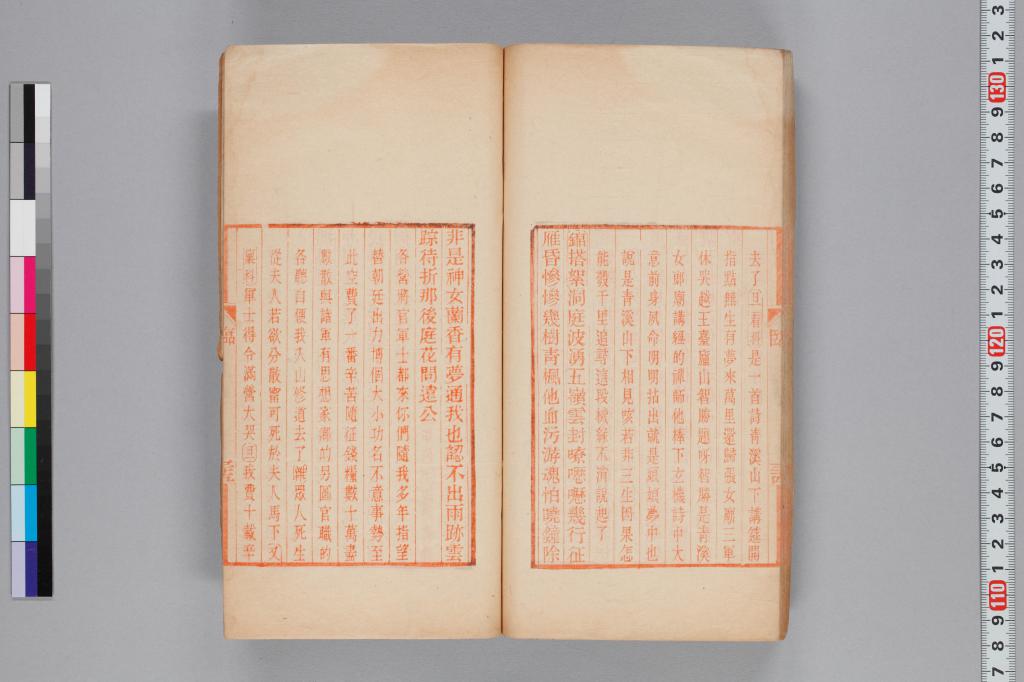 去了[旦]看科是一首詩青溪山下講筵開
指點無生有夢來萬里還歸張女廟三軍
休哭越王臺廬山智勝題呀智勝是青溪
女郎廟講經的禪師他棒下玄機詩中大
意前身夙命明明拈出就是頑頑夢中也
說是青溪山下相見咳若非三生因果怎
能彀千里追尋這段機緣不消說起了
錦搭絮洞庭波湧五嶺雲封嘹嚦嚦幾行征
雁昏慘慘幾樹青楓他血污游魂怕曉鐘除
非是神女蘭香有夢通我也認不出雨跡雲
踪待折那後庭花問遠公
各營將官軍士都來你們隨我多年指望
替朝廷出力博個大小功名不意事勢至
此空費了一番辛苦隨征錢糧數十萬盡
數散與諸軍有思想家鄉的另圖官職的
各聽自便我入山修道去了衆人死生
從夫人若欲分散甯可死於夫人馬下又
稟科軍士得令滿營大哭[旦]我費十載辛